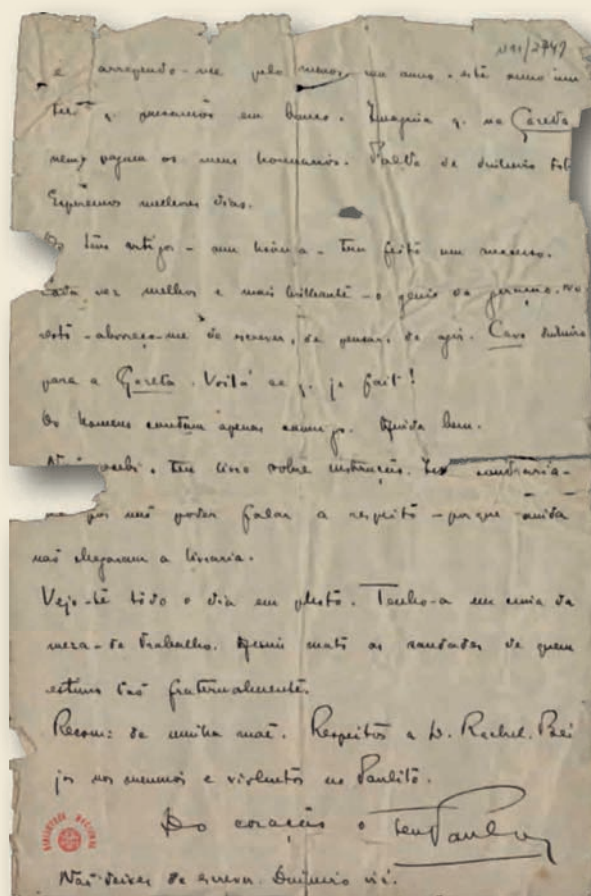 e arrependo-me pelo menos um anno. este anno im
q. passamos em branco. Imagina q. na Gazeta
nem pagam os meus honorarios. Falta de dinheiro
Esperemos melhores dias.
Os teus artigos - um havia - tem feito um successo.
cada vez melhor e mais brilhante - o genio da geração. No
resto - aborreço-me de escrever, de pensar, de agir. Cavo dinheiro
para a Gazeta. Voilá ce q. je fait!
Os homens contam apenas commigo. Ainda bem.
recebi o teu livro sobre instrucção. contraria-
me por não poder falar a respeito - porque ainda
não chegaram a livraria.
Vejo-te todo o dia em photo. Tenho-a em cima da
meza de trabalho. Assim mato as saudades de quem
estimo tão fraternalmente.
Recom: de minha mãe. Respeitos a D. Rachel. Bei
jos nos meninos e violentos no Paulito.
Do coração o teu Paulo
Não deixes de escrever. Dinheiro irá.
BIBLIOTHECA NACIONAL